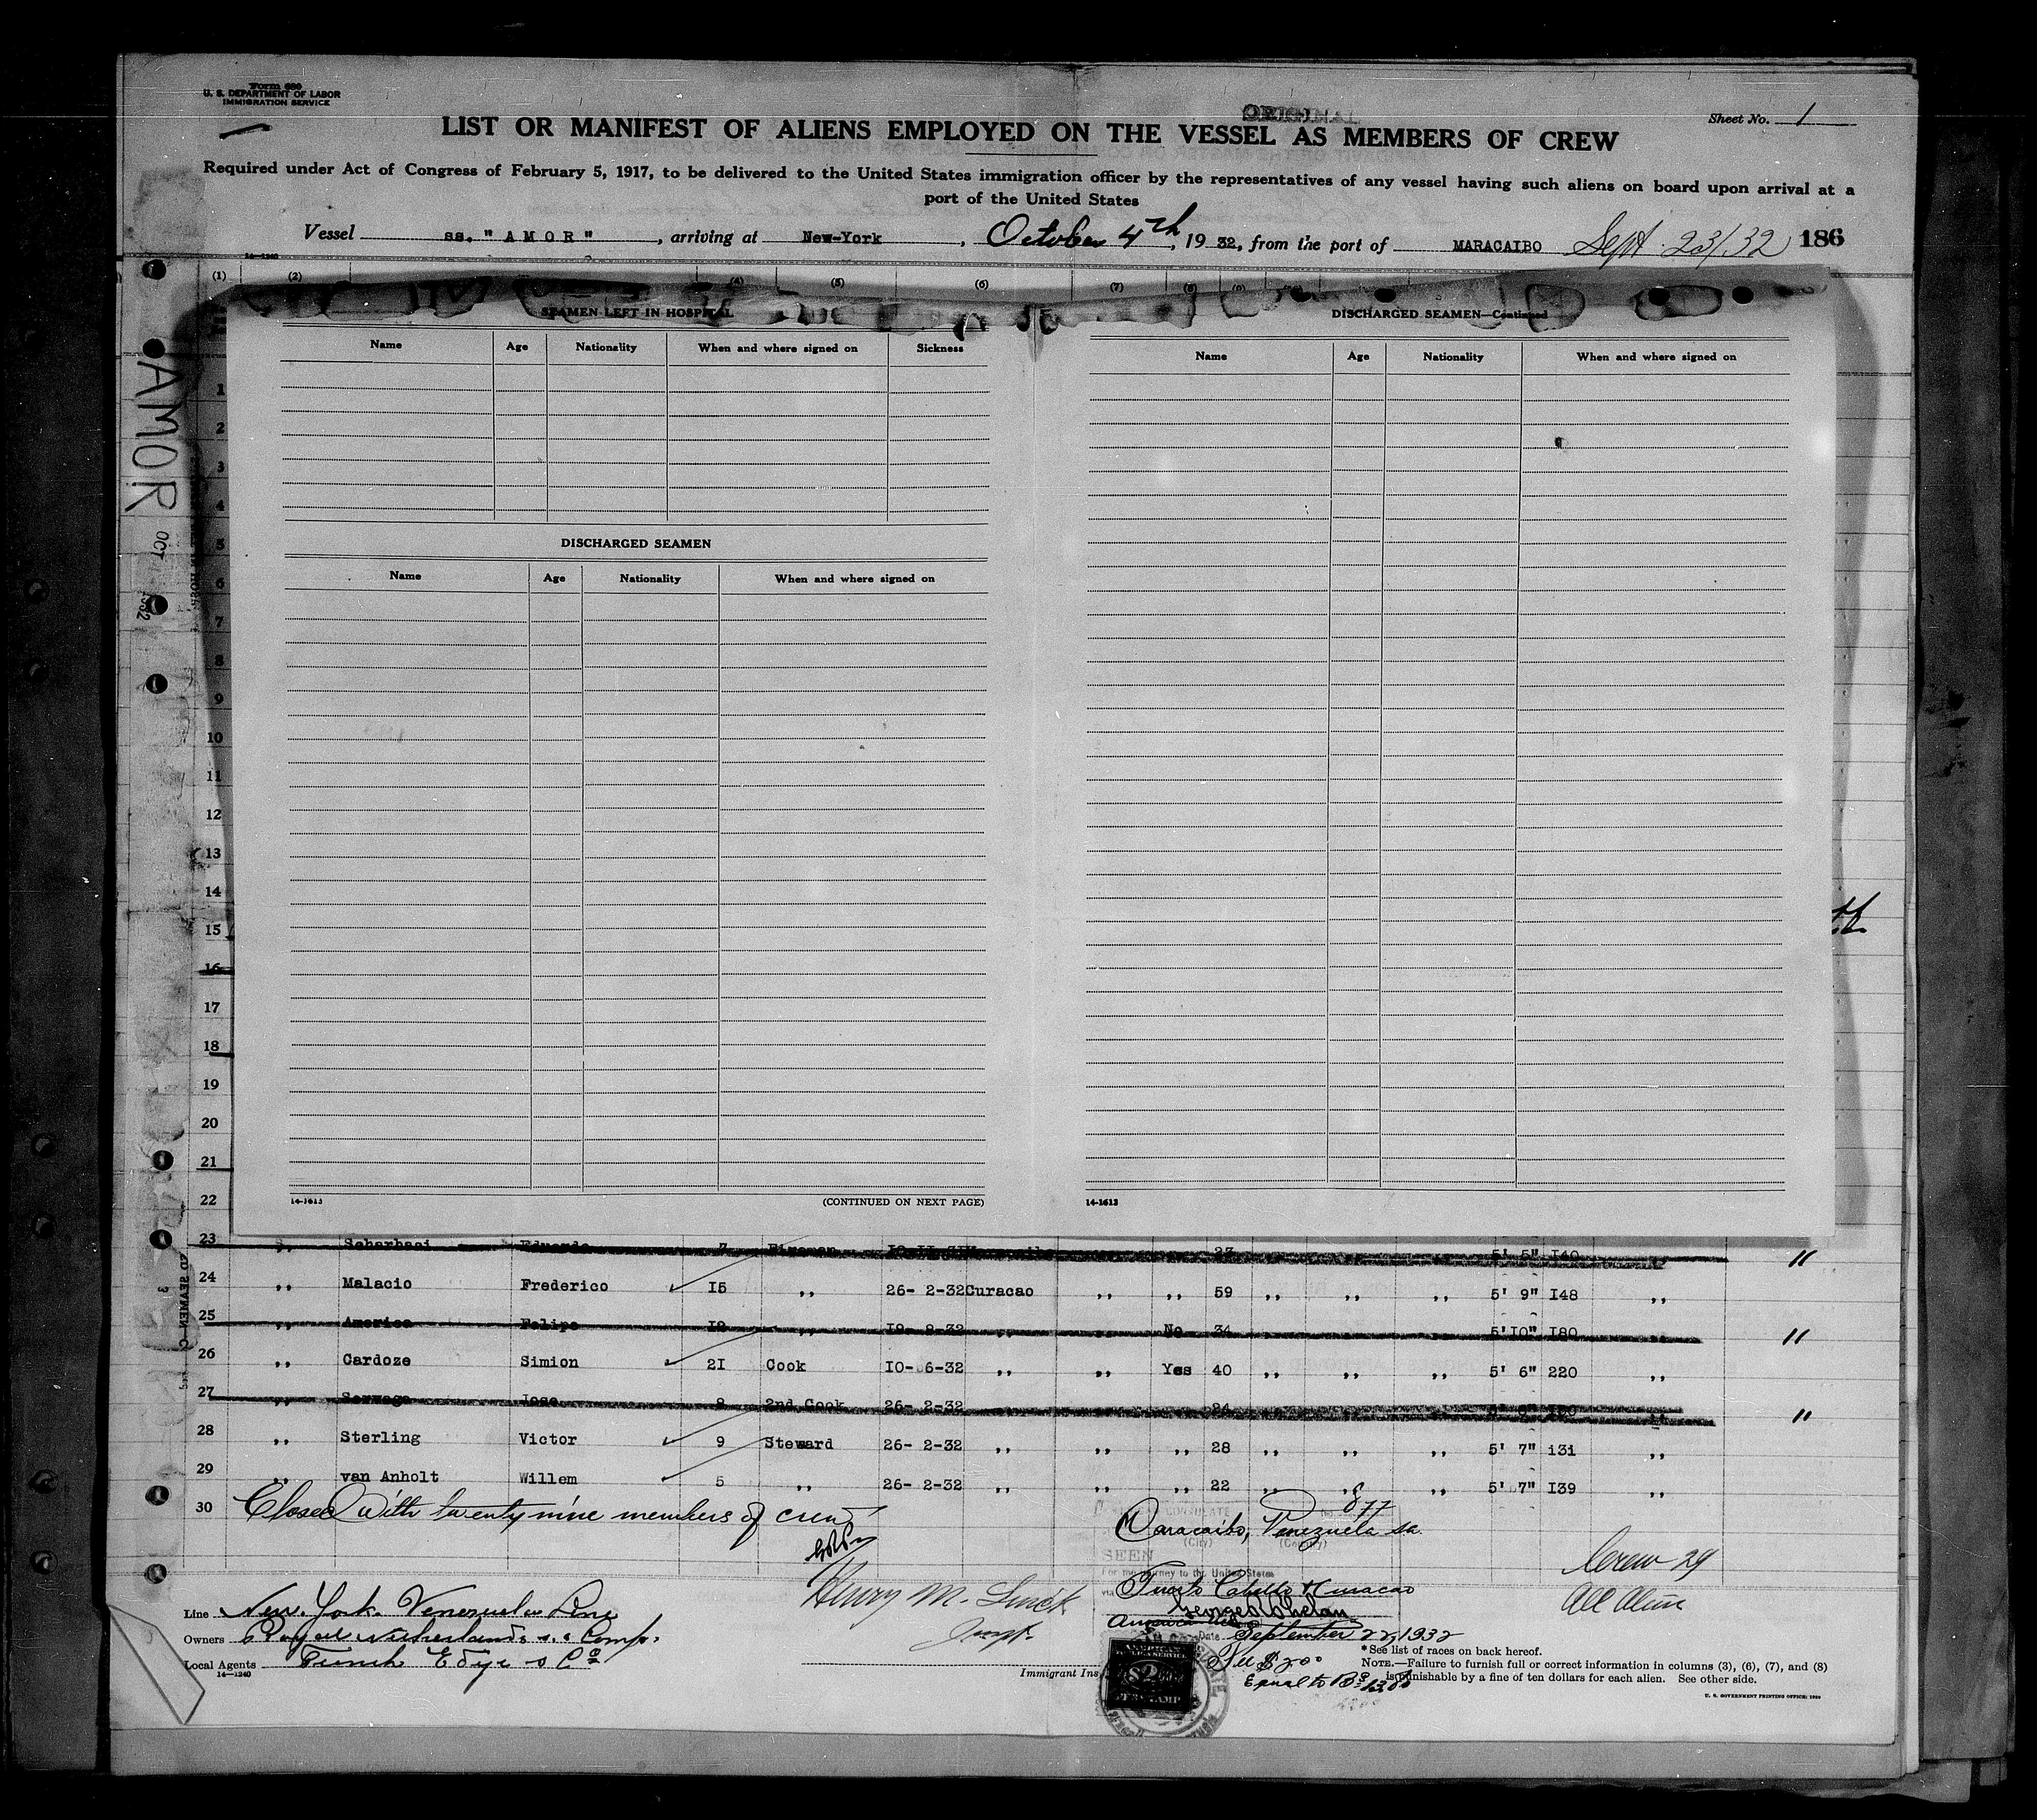 Form 680
U. S. DEPARTMENT OF LABOR
IMMIGRATION SERVICE
ORIGINAL
Sheet No. 1
LIST OR MANIFEST OF ALIENS EMPLOYED ON THE VESSEL AS MEMBERS OF CREW
Required under Act of Congress of February 5, 1917, to be delivered to the United States immigration officer by the representatives of any vessel having such aliens on board upon arrival at a
port of the United States
Vessel ss. "AMOR", arriving at New-York, October 4th, 1932, from the port of MARACAIBO Sept 23/32 186
14-1240
(1) (2) (4) (5) (6) (7) (8) (9)
AMOR
OCT 1932
SEAMEN LEFT IN HOSPITAL
Name Age Nationality When and where signed on Sickness
DISCHARGED SEAMEN
Name Age Nationality When and where signed on
14-1613 (CONTINUED ON NEXT PAGE)
DISCHARGED SEAMEN—Continued
Name Age Nationality When and where signed on
14-1613
1
2
3
4
5
6
7
8
9
10
11
12
13
14
15
16
17
18
19
20
21
22
23 ,, Eduardo 7 Fireman ,, 5' 5" 140 "
24 ,, Malacio Frederico 15 ,, 26- 2-32 Curacao ,, ,, 59 ,, ,, ,, 5' 9" 148 ,,
25 ,, America Felipe 12 ,, 19- 8-32 ,, ,, No 34 5'10" 180 ,, "
26 ,, Cardoze Simion 21 Cook 10- 6-32 ,, ,, Yes 40 ,, ,, ,, 5' 6" 220 ,,
27 ,, Jose 8 2nd Cook 26- 2-32 24 ,, "
28 ,, Sterling Victor 9 Steward 26- 2-32 ,, ,, ,, 28 ,, ,, ,, 5' 7" 131 ,,
29 ,, van Anholt Willem 5 ,, 26- 2-32 ,, ,, ,, 22 ,, ,, ,, 5' 7" 139 ,,
30 Closed With twenty nine members of crew
877
Maracaibo, Venezuela sa.
(City) (Country)
SEEN
For the journey to the United States
via Puerto Cabello & Curacao
Crew 29
All Alien
Henry M.
Line New. York. Venezuela Line
Owners Royal Netherlands s. s Comp.
Local Agents Funch Edye & Co
14-1240
Immigrant Ins
Date September 22, 1932
Fee $2.00
Equal to Bs
*See list of races on back hereof.
NOTE.—Failure to furnish full or correct information in columns (3), (6), (7), and (8)
is punishable by a fine of ten dollars for each alien. See other side.
U. S. GOVERNMENT PRINTING OFFICE: 1930